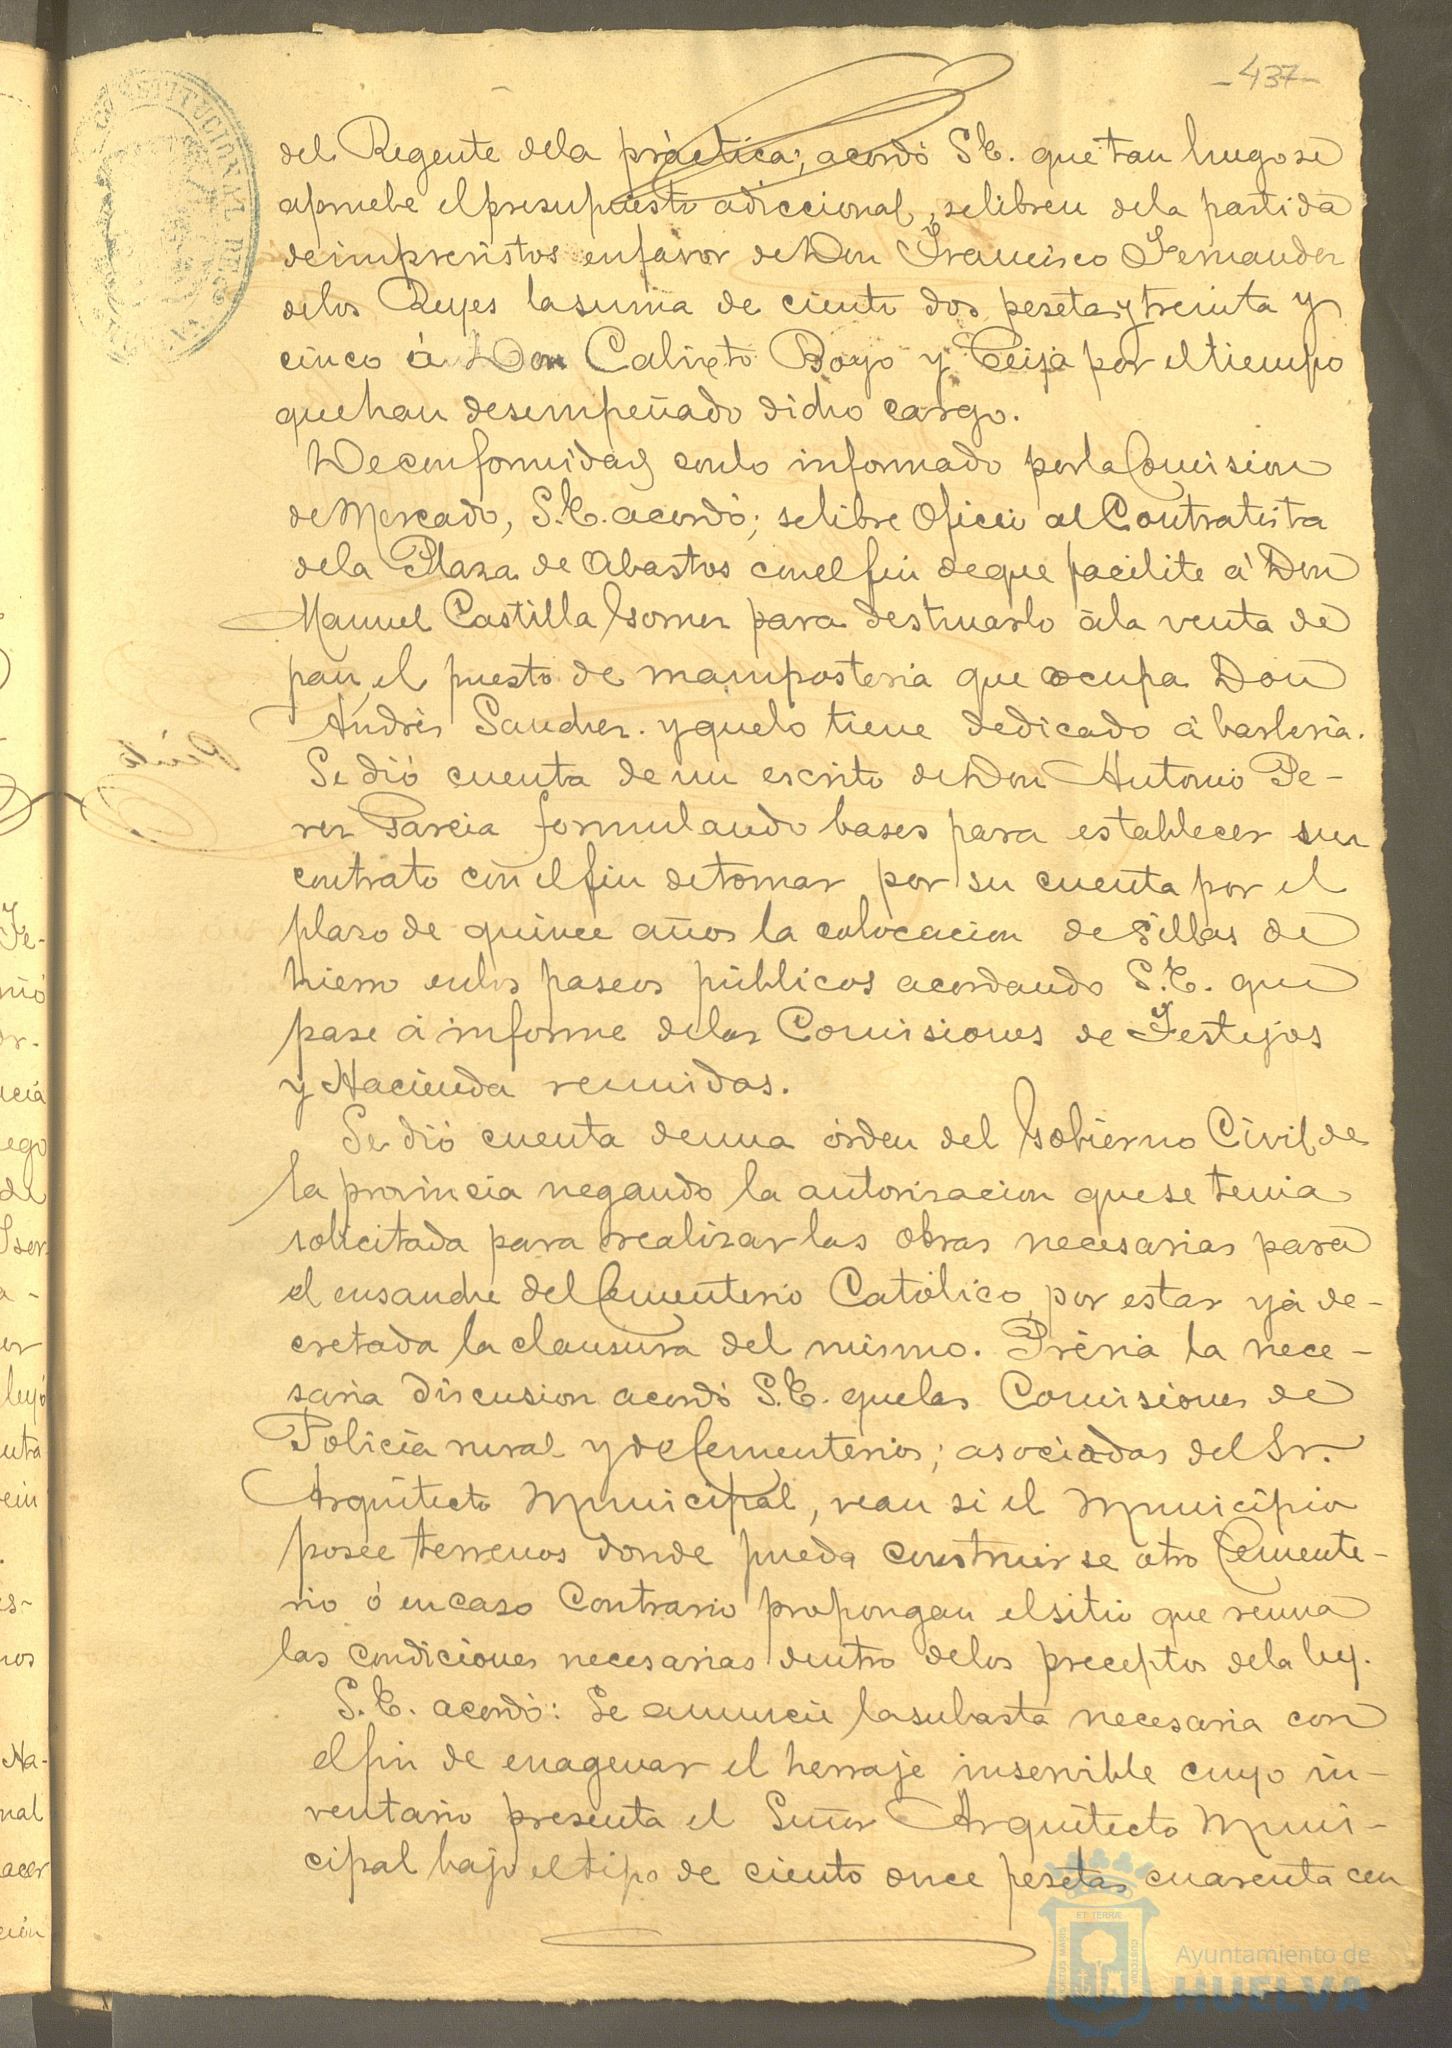 -437-
del Regente dela práctica; acordó S.E. que tan luego se
apruebe el presupuesto adiccional, se libren dela partida
de imprevistos en favor de Don Francisco Fernandez
delos Reyes la suma de ciento dos pesetas y treinta y
cinco á Don Calixto Boyo y Ceija por el tiempo
que han desempeñado dicho cargo.
De conformidad con lo informado por la Comision
de Mercado, S.E. acordó; se libre Oficio al Contratista
dela Plaza de Abastos con el fin de que facilite á Don
Manuel Castilla Gomez para destinarlo á la venta de
pan, el puesto de mamposteria que ocupa Don
Andrés Sanchez. y que lo tiene dedicado á barberia.
Se dió cuenta de un escrito de Don Antonio Pe-
rez Garcia formulando bases para establecer un
contrato con el fin de tomar por su cuenta por el
plazo de quince años la colocacion de sillas de
hierro en los paseos públicos acordando S.E. que
pase á informe delas Comisiones de Festejos
y Hacienda reunidas.
Se dió cuenta de una órden del Gobierno Civil de
la provincia negando la autorizacion que se tenia
solicitada para realizar las obras necesarias para
el ensanche del Cementerio Católico, por estar yá de-
cretada la clausura del mismo. Prévia la nece-
saria discusion acordó S.E. que las Comisiones de
Policía rural y de Cementerios; asociadas del Sr.
Arquitecto Municipal, vean si el Municipio
posee terrenos donde pueda construirse otro Cemente-
rio ó en caso contrario propongan el sitio que reuna
las condiciones necesarias dentro delos preceptos dela ley.
S.E. acordó: Se anuncie la subasta necesaria con
el fin de enagenar el herraje inservible cuyo in-
ventario presenta el Señor Arquitecto Muni-
cipal bajo el tipo de ciento once pesetas cuarenta cen
Ayuntamiento de
HUELVA